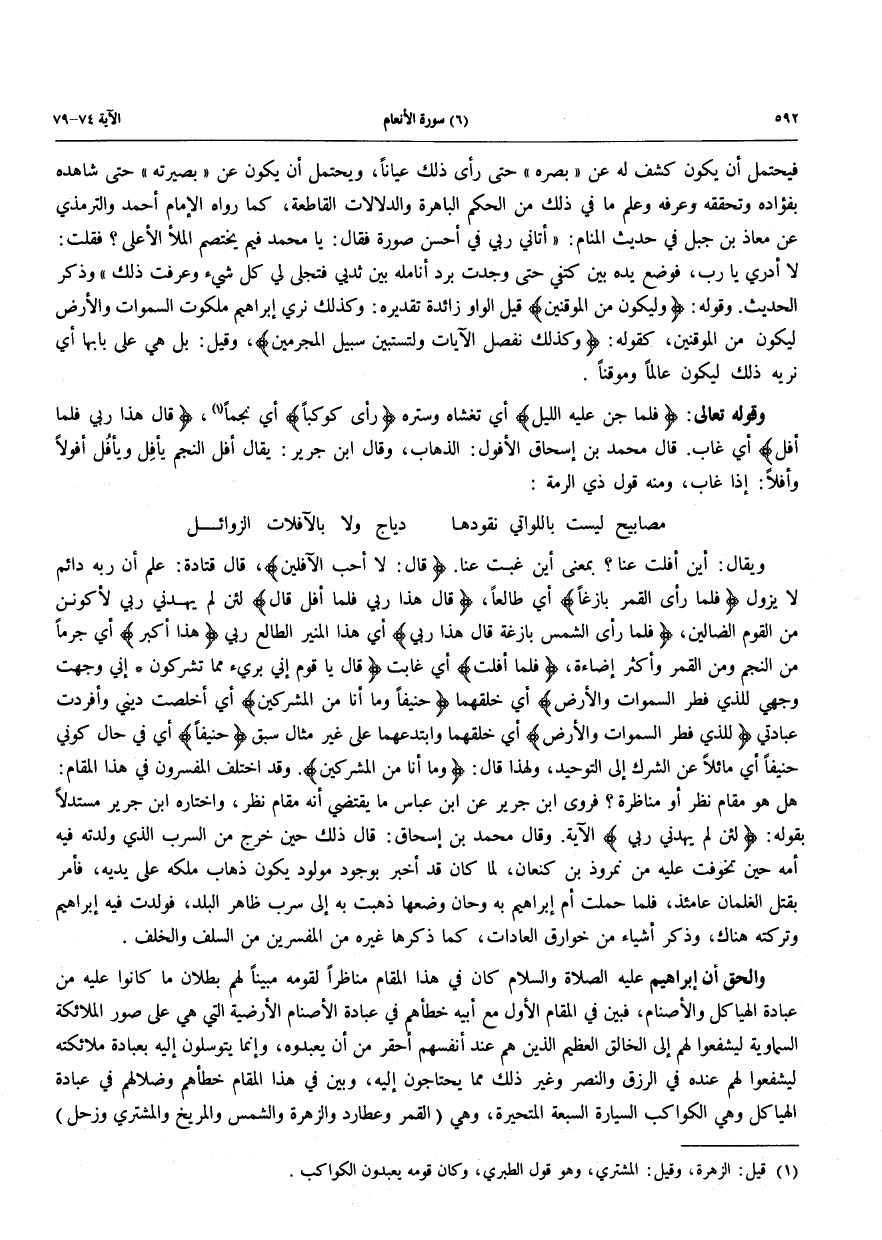 ٥٩٢ (٦) سورة الأنعام الآية ٧٤-٧٩
فيحتمل أن يكون كشف له عن « بصره » حتى رأى ذلك عياناً، ويحتمل أن يكون عن « بصيرته » حتى شاهده
بفؤاده وتحققه وعرفه وعلم ما في ذلك من الحكم الباهرة والدلالات القاطعة، كما رواه الإمام أحمد والترمذي
عن معاذ بن جبل في حديث المنام: « أتاني ربي في أحسن صورة فقال: يا محمد فيم يختصم الملأ الأعلى ؟ فقلت:
لا أدري يا رب، فوضع يده بين كتفي حتى وجدت برد أنامله بين ثديي فتجلى لي كل شيء وعرفت ذلك » وذكر
الحديث. وقوله: ﴿ وليكون من الموقنين﴾ قيل الواو زائدة تقديره: وكذلك نري إبراهيم ملكوت السموات والأرض
ليكون من الموقنين، كقوله: ﴿ وكذلك نفصل الآيات ولتستبين سبيل المجرمين﴾، وقيل: بل هي على بابها أي
نريه ذلك ليكون عالماً وموقناً .
وقوله تعالى: ﴿ فلما جن عليه الليل﴾ أي تغشاه وستره ﴿رأى كوكباً﴾ أي نجماً(١) ، ﴿ قال هذا ربي فلما
أفل﴾ أي غاب. قال محمد بن إسحاق الأفول: الذهاب، وقال ابن جرير : يقال أفل النجم يأفِل ويأفُل أفولاً
وأفلاً: إذا غاب، ومنه قول ذي الرمة :
مصابيح ليست باللواتي نقودها دياج ولا بالآفلات الزوائـــل
ويقال: أين أفلت عنا ؟ بمعنى أين غبت عنا. ﴿ قال: لا أحب الآفلين﴾، قال قتادة: علم أن ربه دائم
لا يزول ﴿ فلما رأى القمر بازغاً﴾ أي طالعاً، ﴿ قال هذا ربي فلما أفل قال﴾ لئن لم يهـدني ربي لأكونـن
من القوم الضالين، ﴿ فلما رأى الشمس بازغة قال هذا ربي﴾ أي هذا المنير الطالع ربي ﴿ هذا أكبر ﴾ أي جرماً
من النجم ومن القمر وأكثر إضاءة، ﴿ فلما أفلت﴾ أي غابت ﴿ قال يا قوم إني بريء مما تشركون * إني وجهت
وجهي للذي فطر السموات والأرض﴾ أي خلقهما ﴿ حنيفاً وما أنا من المشركين﴾ أي أخلصت ديني وأفردت
عبادتي ﴿ للذي فطر السموات والأرض﴾ أي خلقهما وابتدعهما على غير مثال سبق ﴿ حنيفاً﴾ أي في حال كوني
حنيفاً أي مائلاً عن الشرك إلى التوحيد، ولهذا قال: ﴿ وما أنا من المشركين﴾. وقد اختلف المفسرون في هذا المقام:
هل هو مقام نظر أو مناظرة ؟ فروى ابن جرير عن ابن عباس ما يقتضي أنه مقام نظر ، واختاره ابن جرير مستدلاً
بقوله: ﴿ لئن لم يهدني ربي ﴾ الآية. وقال محمد بن إسحاق: قال ذلك حين خرج من السرب الذي ولدته فيه
أمه حين تخوفت عليه من نمروذ بن كنعان، لما كان قد أخبر بوجود مولود يكون ذهاب ملكه على يديه، فأمر
بقتل الغلمان عامئذ، فلما حملت أم إبراهيم به وحان وضعها ذهبت به إلى سرب ظاهر البلد، فولدت فيه إبراهيم
وتركته هناك، وذكر أشياء من خوارق العادات، كما ذكرها غيره من المفسرين من السلف والخلف .
والحق أن إبراهيم عليه الصلاة والسلام كان في هذا المقام مناظراً لقومه مبيناً لهم بطلان ما كانوا عليه من
عبادة الهياكل والأصنام، فبين في المقام الأول مع أبيه خطأهم في عبادة الأصنام الأرضية التي هي على صور الملائكة
السماوية ليشفعوا لهم إلى الخالق العظيم الذين هم عند أنفسهم أحقر من أن يعبدوه، وإنما يتوسلون إليه بعبادة ملائكته
ليشفعوا لهم عنده في الرزق والنصر وغير ذلك مما يحتاجون إليه، وبين في هذا المقام خطأهم وضلالهم في عبادة
الهياكل وهي الكواكب السيارة السبعة المتحيرة، وهي ( القمر وعطارد والزهرة والشمس والمريخ والمشتري وزحل )
(١) قيل: الزهرة، وقيل: المشتري، وهو قول الطبري، وكان قومه يعبدون الكواكب .